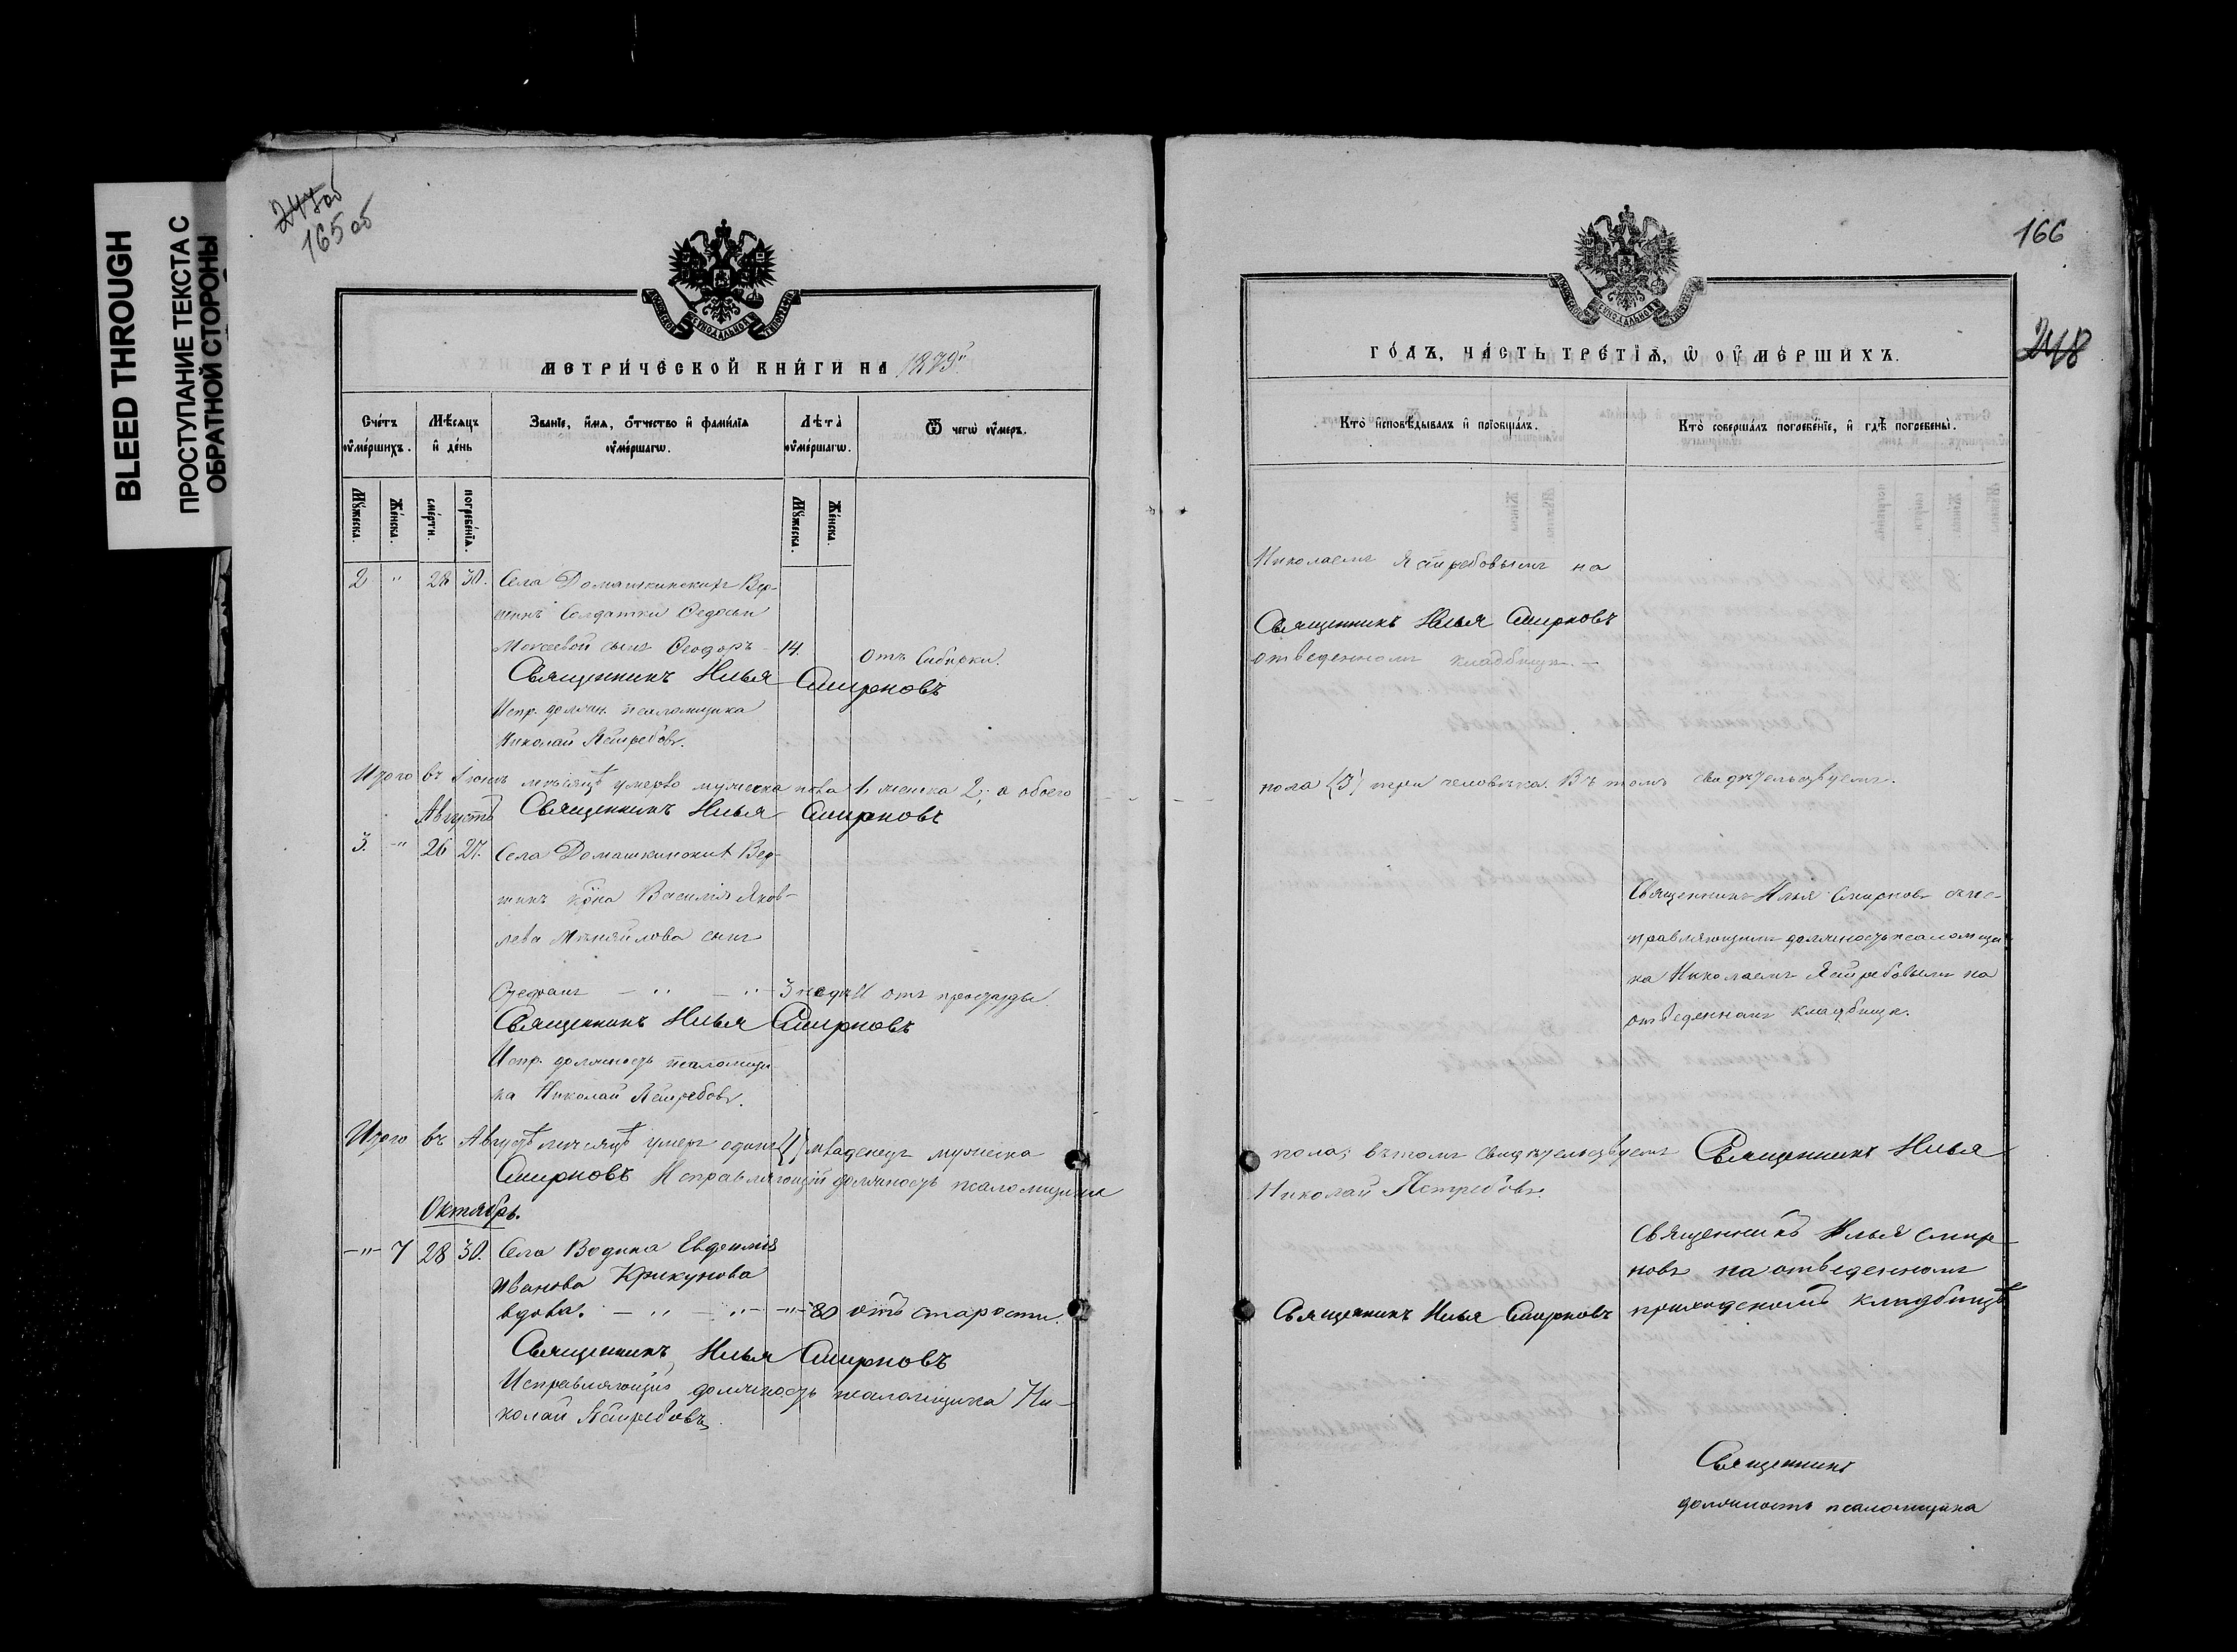 BLEED THROUGH
ПРОСТУПАНИЕ ТЕКСТА С
ОБРАТНОЙ СТОРОНЫ
247об
165 об
МЕТРИ́ЧЕСКОЙ КНИ́ГИ НА 1879й
Сче́тъ оу҆ме́ршихъ.
Мѣ́сяцъ и҆ де́нь
Зва́нїе, и҆́мя, ѻ҆́тчество и҆ фами́лїя оу҆ме́ршагѡ.
Лѣ́та оу҆ме́ршагѡ.
Ѿ чегѡ̀ оу҆́меръ.
Мꙋ́жеска.
Же́нска.
сме́рти.
погребе́нїѧ.
Мꙋ́жеска.
Же́нска.
2 " 28 30. Села Домашкинскихъ Вер-
шинъ Солдатки Федосьи
Моисеевой сынъ Феодоръ - 14. Отъ Сибирки.
Священникъ Илья Смирновъ
Испр. должн. псаломщика
Николай Ястребовъ.
Итого въ Іюнѣ мѣсяцѣ умерло мужеска пола 1, женска 2; а обоего
Августъ Священникъ Илья Смирновъ
3. -"- 26 27. Села Домашкинскихъ Вер-
шинъ Василія Яков-
лева сынъ
Стефанъ - " - " - 3 недѣли отъ простуды.
Священникъ Илья Смирновъ
Испр. должность псаломщи
ка Николай Ястребовъ.
Итого въ Августѣ мѣсяцѣ умеръ одинъ (1) младенецъ мужеска
Смирновъ Исправляющій должность псаломщика
Октябрь.
-"- 7 28 30. Села Водина Евдокия
Иванова Крикунова
вдова. - " - " - "- 80 отъ старости.
Священникъ Илья Смирновъ
Исправляющій должность псаломщика Ни-
колай Ястребовъ.
166
248
ГО́ДЪ, ЧА́СТЬ ТРЕ́ТЇѦ, Ѡ҆ ОУ҆МЕ́РШИХЪ.
Кто̀ и҆сповѣ́дывалъ и҆ прїѡбща́лъ.
Кто̀ соверша́лъ погребе́нїе, и҆ гдѣ̀ погребены̀.
Николаемъ Ястребовымъ на
Священникъ Илья Смирновъ
отведенномъ кладбищѣ. -
пола (3) три человѣка. Въ томъ свидѣтельствуемъ.
Священникъ Илья Смирновъ съ ис-
правляющимъ должность псаломщи-
ка Николаемъ Ястребовымъ на
отведенномъ кладбищѣ.
пола; въ томъ свидѣтельствуемъ Священникъ Илья
Николай Ястребовъ.
Священникъ Илья Смир-
новъ на отведенномъ
Священникъ Илья Смирновъ приходскомъ кладбищѣ
Священникъ
должность псаломщика